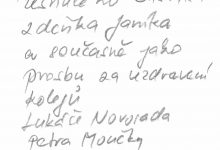 Zdeňka Janíka
a současně jako
prosbu za uzdravení
kolegů
Lukáše Novosada
Petra Moučky